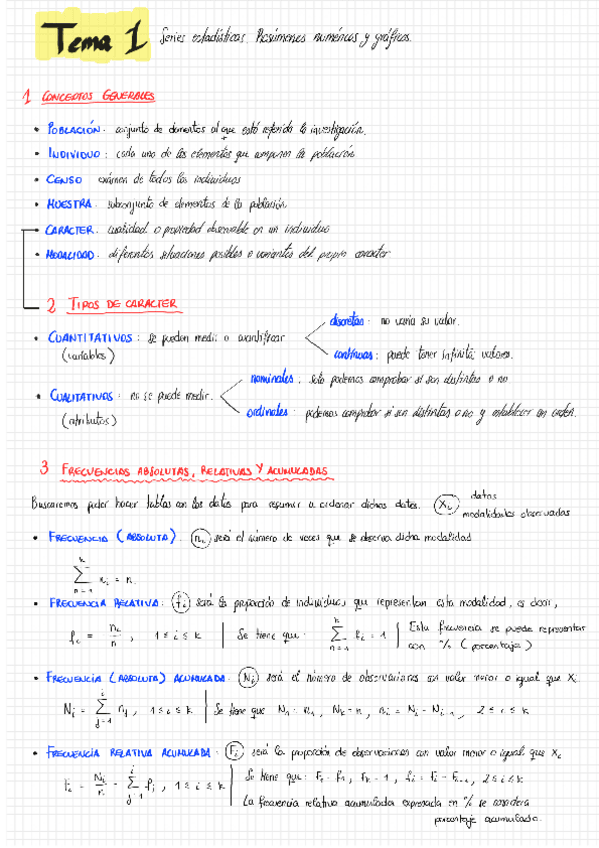 Tema 1 Series estadísticas. Resúmenes numéricos y gráficos.
1 CONCEPTOS GENERALES
• POBLACIÓN: conjunto de elementos al que está referida la investigación.
• INDIVIDUO: cada uno de los elementos que componen la población
• CENSO examen de todos los individuos
• MUESTRA: subconjunto de elementos de la población.
• CARACTER: cualidad o propiedad observable en un individuo
• MODALIDAD: diferentes situaciones posibles o variantes del propio caracter
2 TIPOS DE CARACTER
discretas: no varía su valor.
• CUANTITATIVOS: se pueden medir o cuantificar
(variables)
continuas: puede tener infinitos valores.
nominales: solo podemos comprobar si son distintas o no
• CUALITATIVOS: no se puede medir.
(atributos)
ordinales: podemos comprobar si son distintas o no y establecer un orden.
3 FRECUENCIAS ABSOLUTAS, RELATIVAS Y ACUMULADAS
Buscaremos poder hacer tablas con los datos para resumir u ordenar dichos datos. xi datos
modalidades observadas
• FRECUENCIA (ABSOLUTA): ni será el número de veces que se observa dicha modalidad
k ∑ n=1 ni = n.
• FRECUENCIA RELATIVA: fi será la proporción de individuos que representan esta modalidad, es decir,
fi = ni/n, 1 ≤ i ≤ k | Se tiene que: k ∑ n=1 fi = 1 | Esta frecuencia se puede representar
con % (porcentaje)
• FRECUENCIA (ABSOLUTA) ACUMULADA: Ni será el número de observaciones con valor menor o igual que xi
Ni = i ∑ j=1 nj, 1 ≤ i ≤ k | Se tiene que N1 = n1, Nk = n, ni = Ni - Ni-1, 2 ≤ i ≤ k
• FRECUENCIA RELATIVA ACUMULADA: Fi será la proporción de observaciones con valor menor o igual que xi
Fi = Ni/n = i ∑ j=1 fj, 1 ≤ i ≤ k | Se tiene que: F1 = f1, Fk = 1, fi = Fi - Fi-1, 2 ≤ i ≤ k
La frecuencia relativa acumulada expresada en % se considera
porcentaje acumulado.